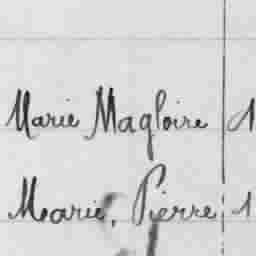 Marie Magloire 1
Marie, Pierre 1